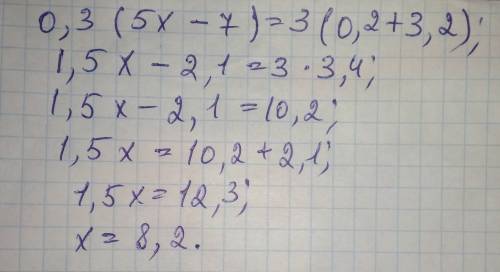 0,3 (5x - 7) = 3 (0,2 + 3,2);
1,5 x - 2,1 = 3 · 3,4;
1,5 x - 2,1 = 10,2;
1,5 x = 10,2 + 2,1;
1,5 x = 12,3;
x = 8,2.